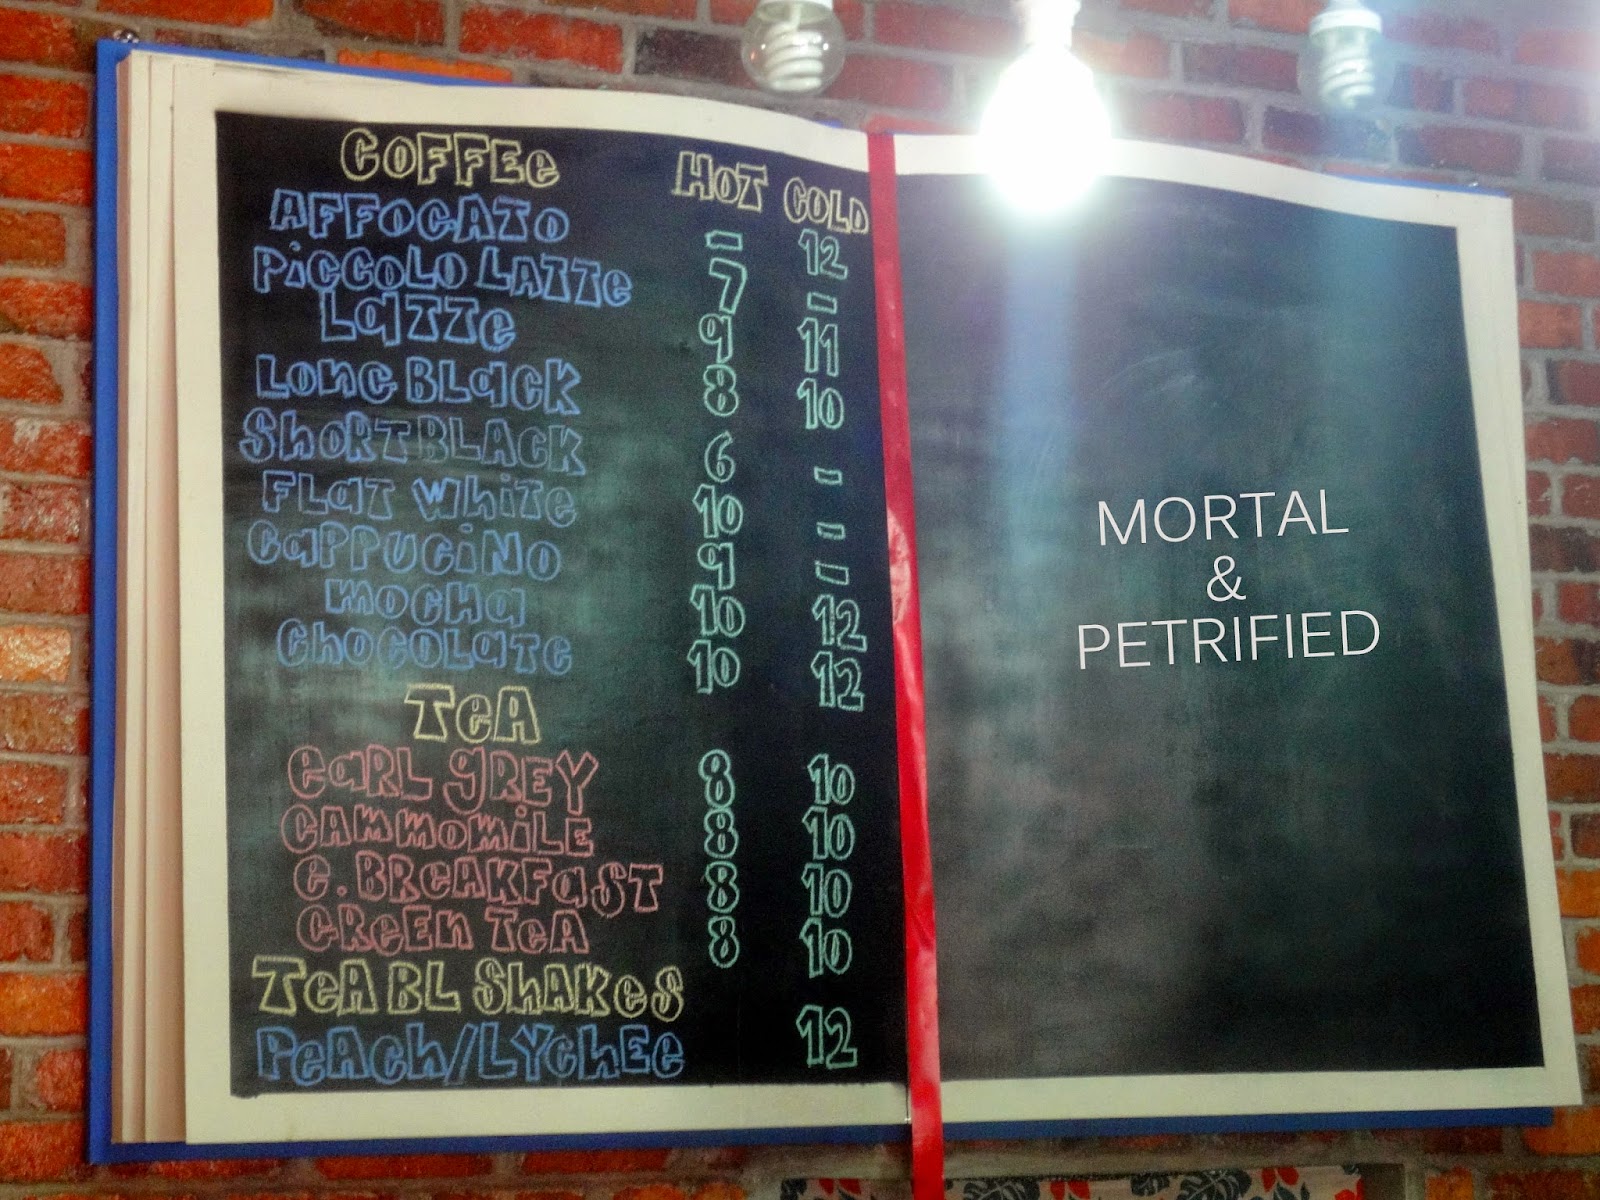 COFFEE HOT COLD
AFFOCATO - 12
PICCOLO LATTE 7 -
LATTE 9 11
LONG BLACK 8 10
SHORT BLACK 6 -
FLAT WHITE 10 -
CAPPUCINO 9 -
MOCHA 10 12
CHOCOLATE 10 12
TEA
EARL GREY 8 10
CAMMOMILE 8 10
E.BREAKFAST 8 10
GREEN TEA 8 10
TEA BL SHAKES
PEACH/LYCHEE 12
MORTAL
&
PETRIFIED